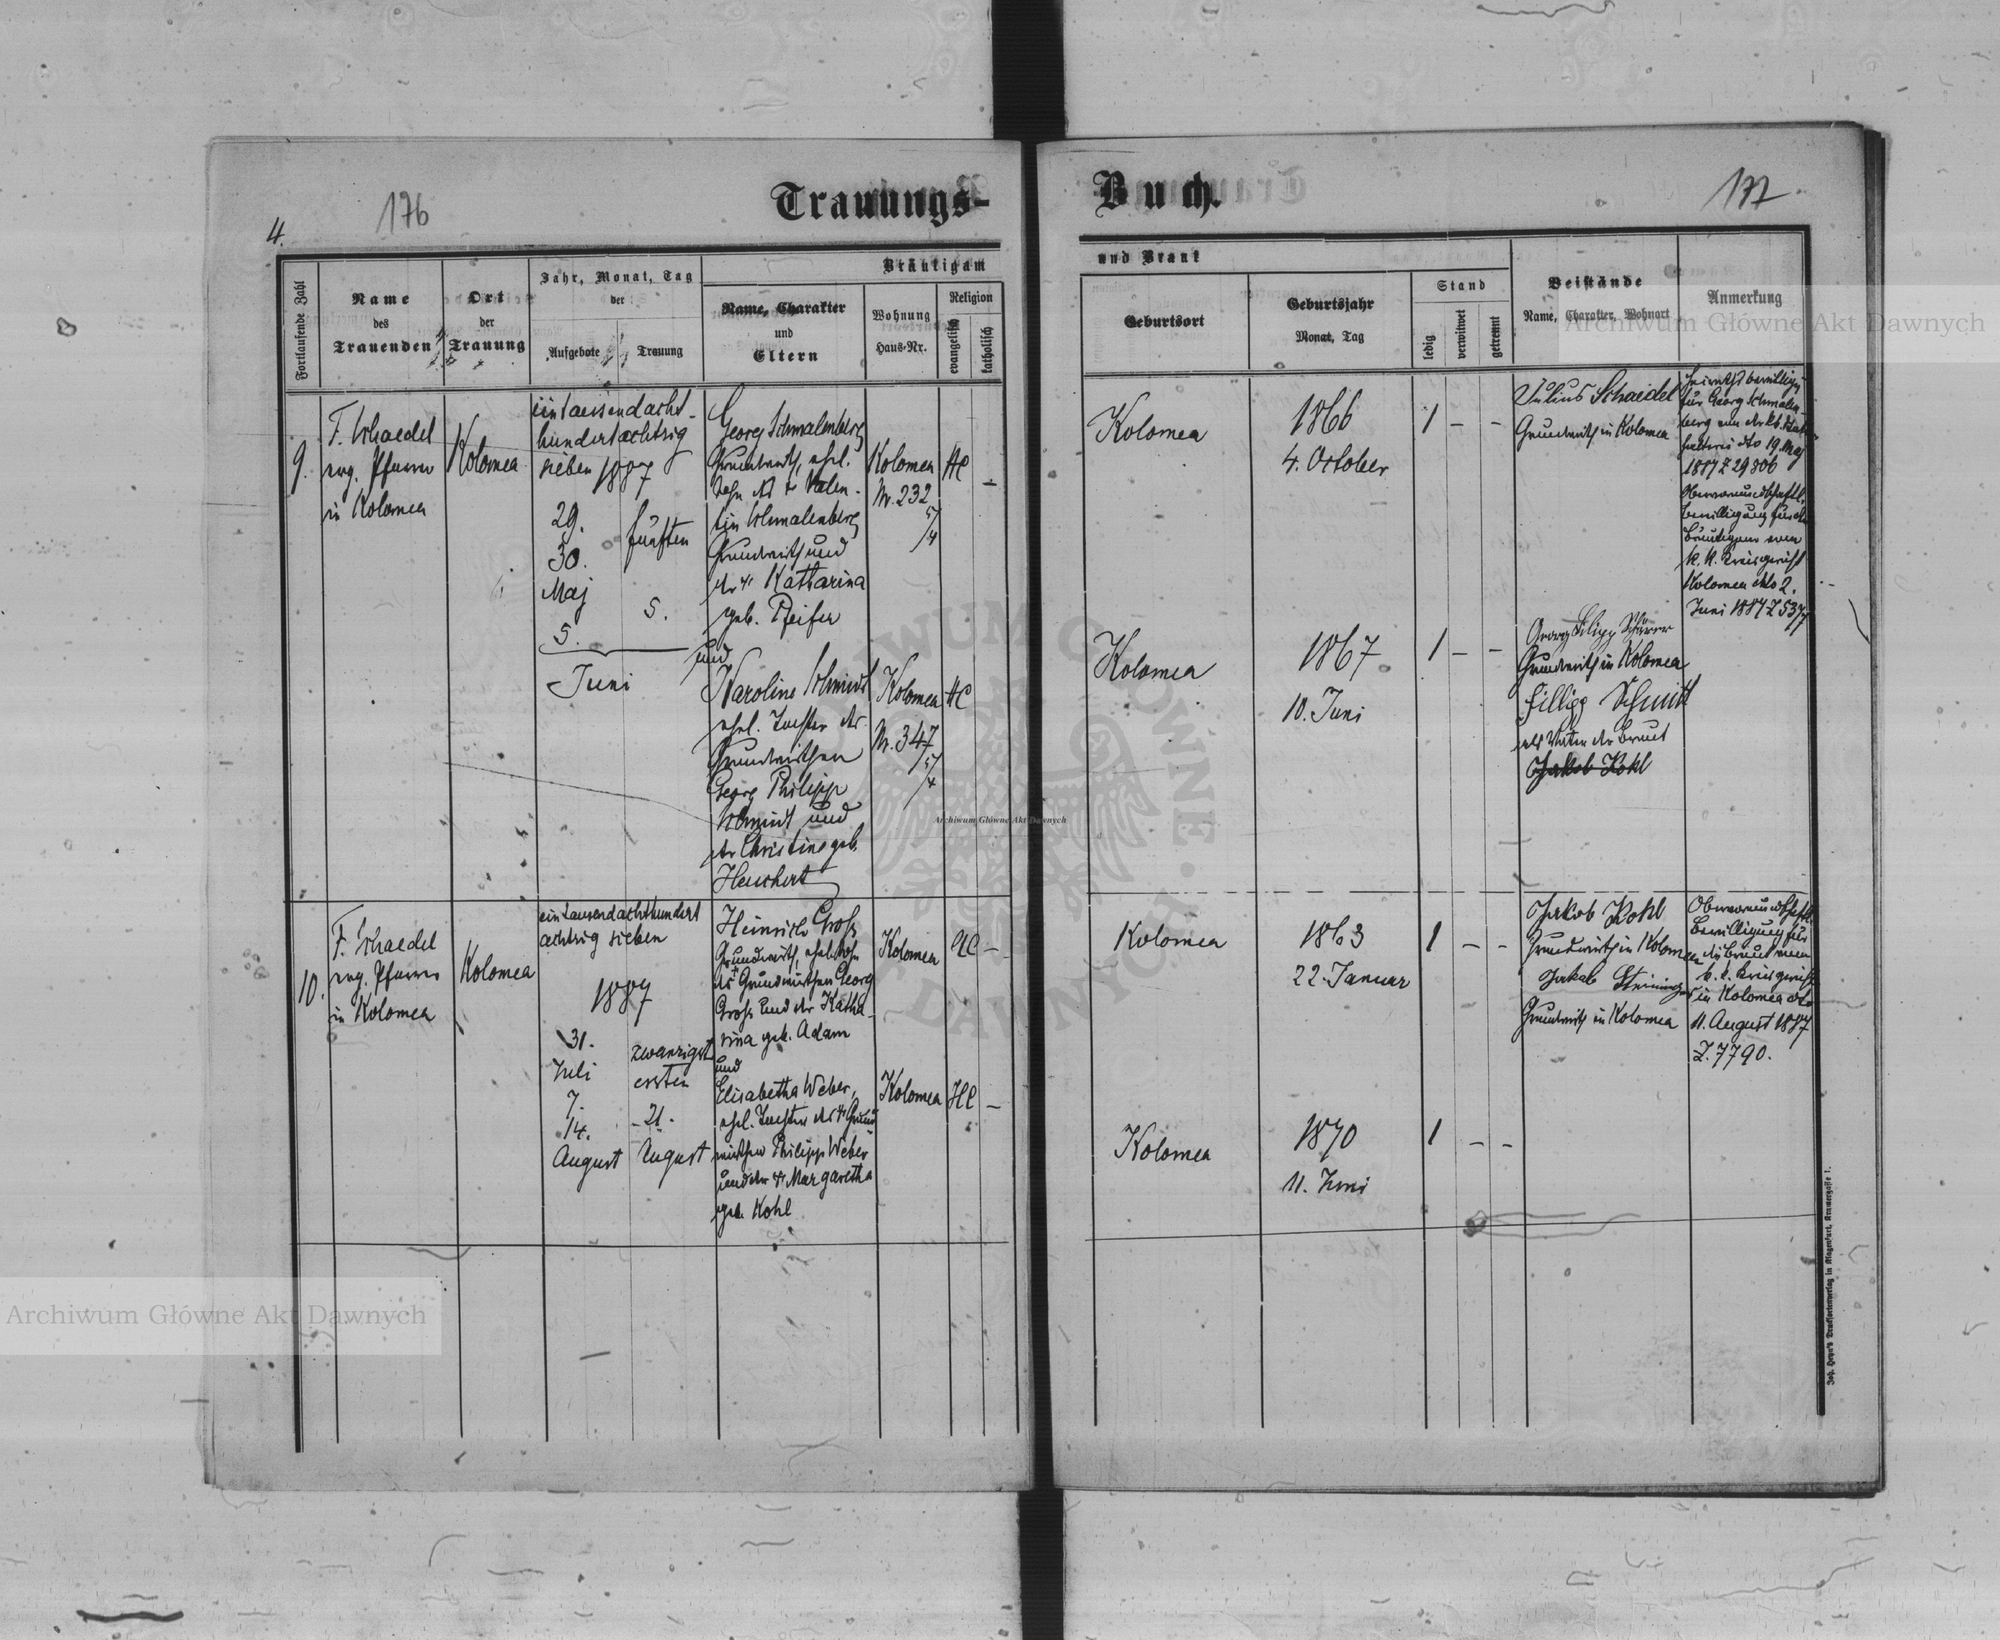 176
4.
Trauungs-
Fortlaufende Zahl
Name
des
Trauenden
Ort
der
Trauung
Jahr, Monat, Tag
der
Aufgebote
Trauung
Bräutigam
Name, Charakter
und
Eltern
Wohnung
Haus-Nr.
Religion
evangelisch
katholisch
9.
F. Schaedel
evg. Pfarrer
in Kolomea
Kolomea
eintausendacht-
hundertachtzig
sieben 1887
29.
30.
Maj
5.
Juni
fünften
5.
Georg Schmalenberg
Grundwirth, ehel.
Sohn des † Valen-
tin Schmalenberg
Grundwirth und
der † Katharina
geb. Pfeifer
und
Karoline Schmidt
ehel. Tochter der
Grundwirthen
Georg Philipp
Schmidt und
der Christine geb.
Heuchert
Kolomea
Nr. 232
Kolomea
Nr. 347
HC
–
HC
10.
F. Schaedel
evg. Pfarrer
in Kolomea
Kolomea
eintausendachthundert
achtzig sieben
1887
31.
Juli
7.
14.
August
zwanzigst
ersten
21.
August
Heinrich Gross
Grundwirth, ehel. Sohn
des Grundwirthen Georg
Gross und der Katha-
rina geb. Adam
und
Elisabetha Weber,
ehel. Tochter des † Grund
wirthen Philipp Weber
und der † Margaretha
geb. Kohl
Kolomea
Kolomea
HC –
HC –
177
Buch.
und Braut
Geburtsort
Geburtsjahr
Monat, Tag
Stand
ledig
verwitwet
getrennt
Beistände
Name, Charakter, Wohnort
Anmerkung
Kolomea
1866
4. October
1 – –
Julius Schaedel
Grundwirth in Kolomea
Heirathsbewilligung
für Georg Schmalen-
berg von der k.k. Statt
halterei dto 19. Maj
1887 Z 29306
Obervormundschaftl.
Bewilligung für den
Bräutigam vom
k. k. Kreisgericht
Kolomea dto 2.
Juni 1887 Z 5377
Kolomea
1867
10. Juni
1 – –
Georg Filipp
Grundwirth in Kolomea
Fillipp Schmitt
als Vater der Braut
Jakob Kohl
Kolomea
1863
22. Januar
1 – –
Jakob Kohl
Grundwirth in Kolomea
Jakob Steininger
Grundwirth in Kolomea
Obervormundschaftl.
Bewilligung für
die Braut vom
k. k. Kreisgericht
in Kolomea dto
11. August 1887
Z. 7790.
Kolomea
1870
11. Juni
1 – –
Joh. Heyn's Drucksortenverlag in Klagenfurt, Kramergasse 1.
Archiwum Główne Akt Dawnych
Archiwum Główne Akt Dawnych
Archiwum Główne Akt Dawnych